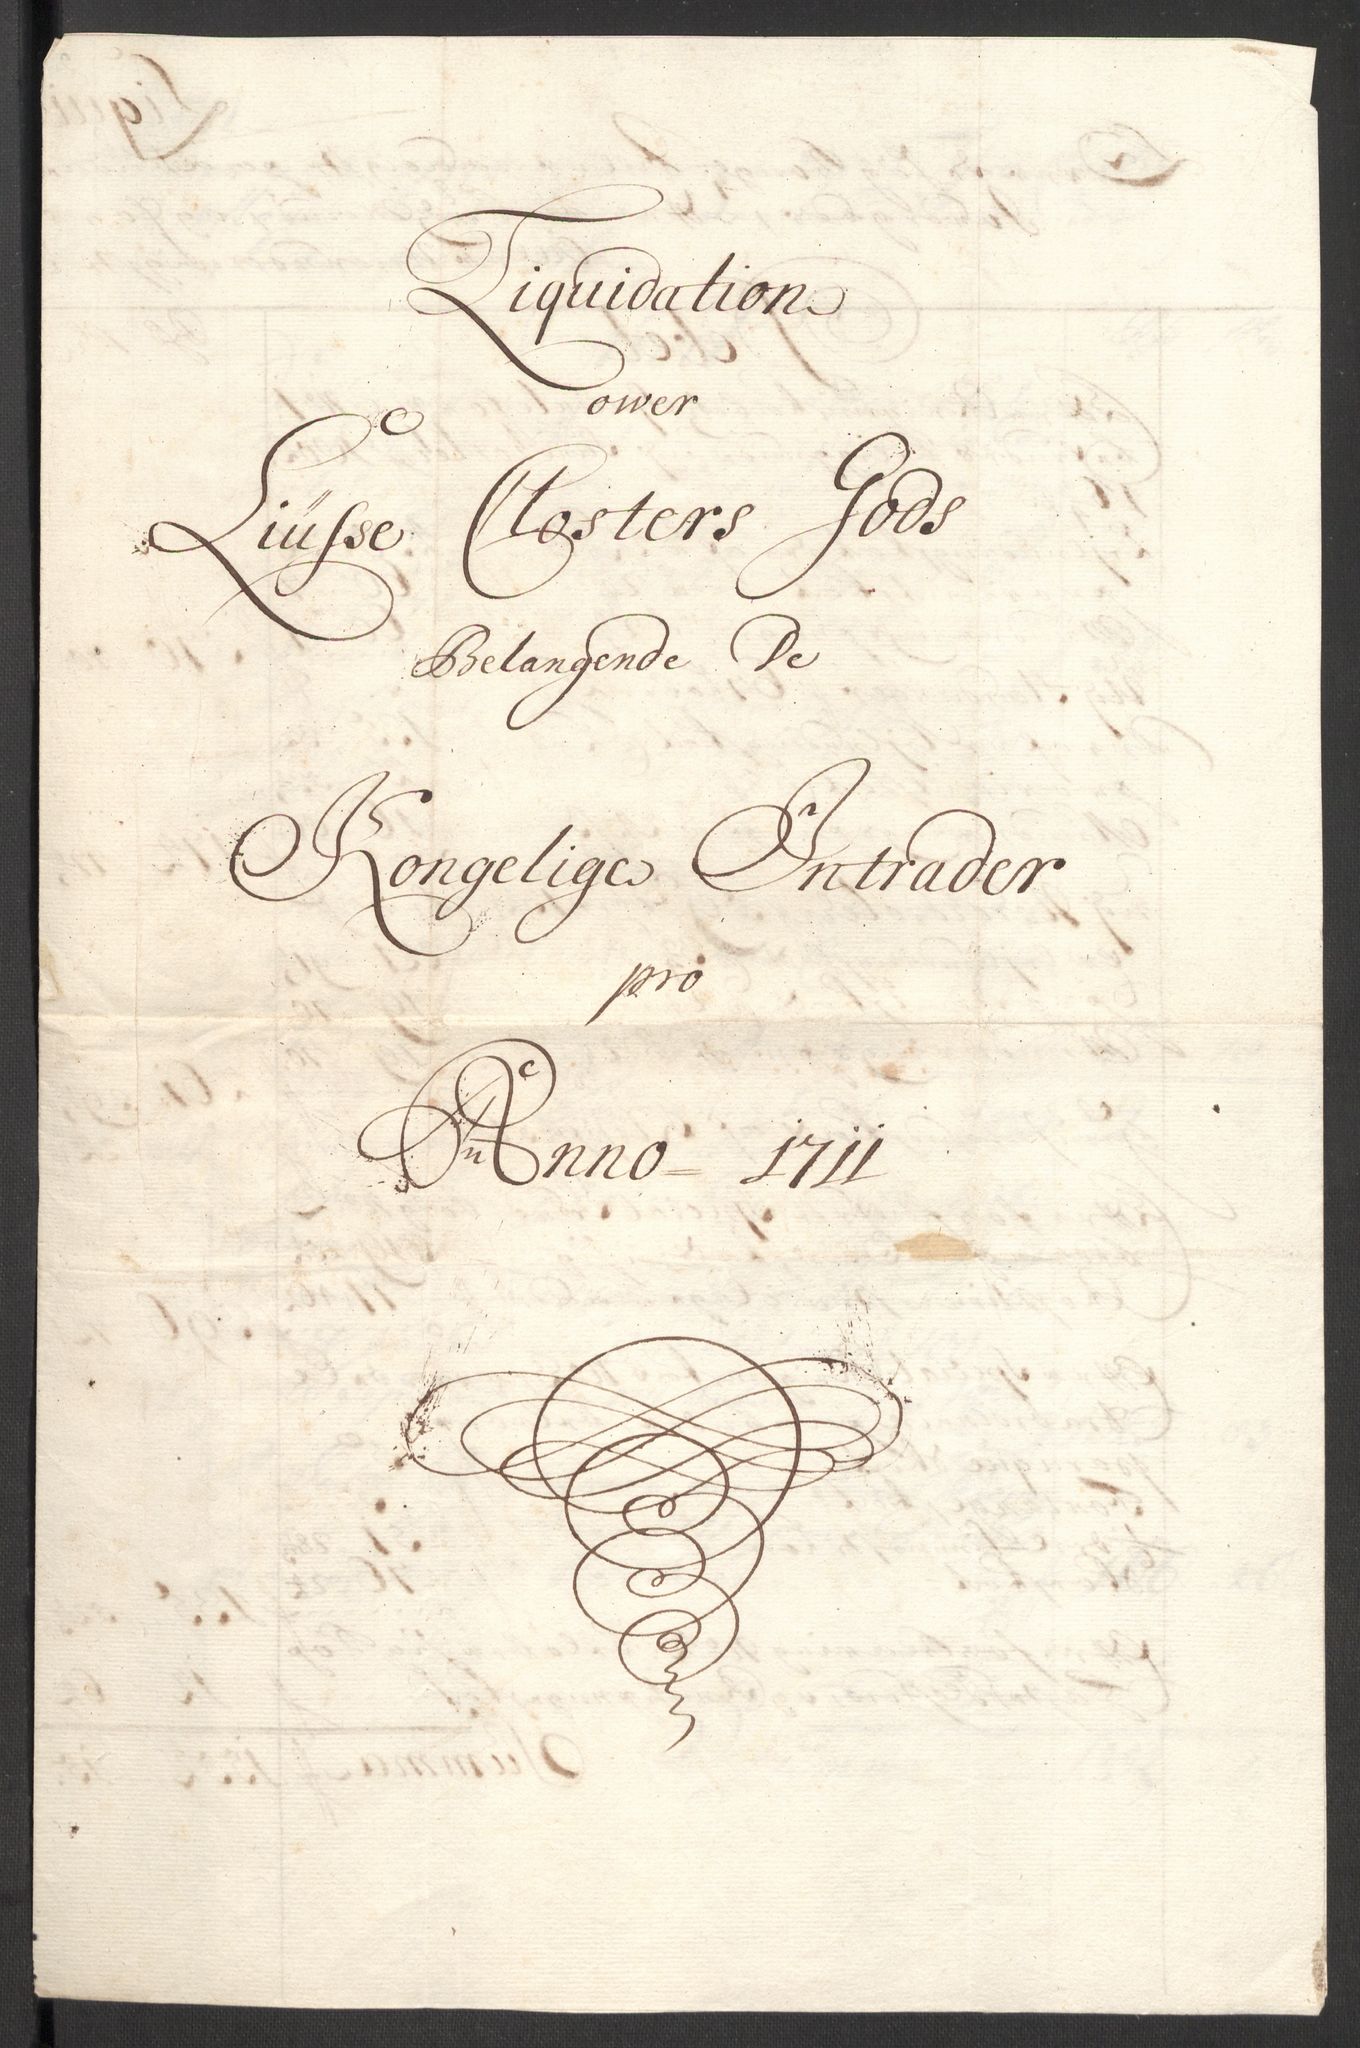 Liquidation
ower
Liüsse Closters Gods
Belangende De
Kongelige Intrader
pro
Anno 1711